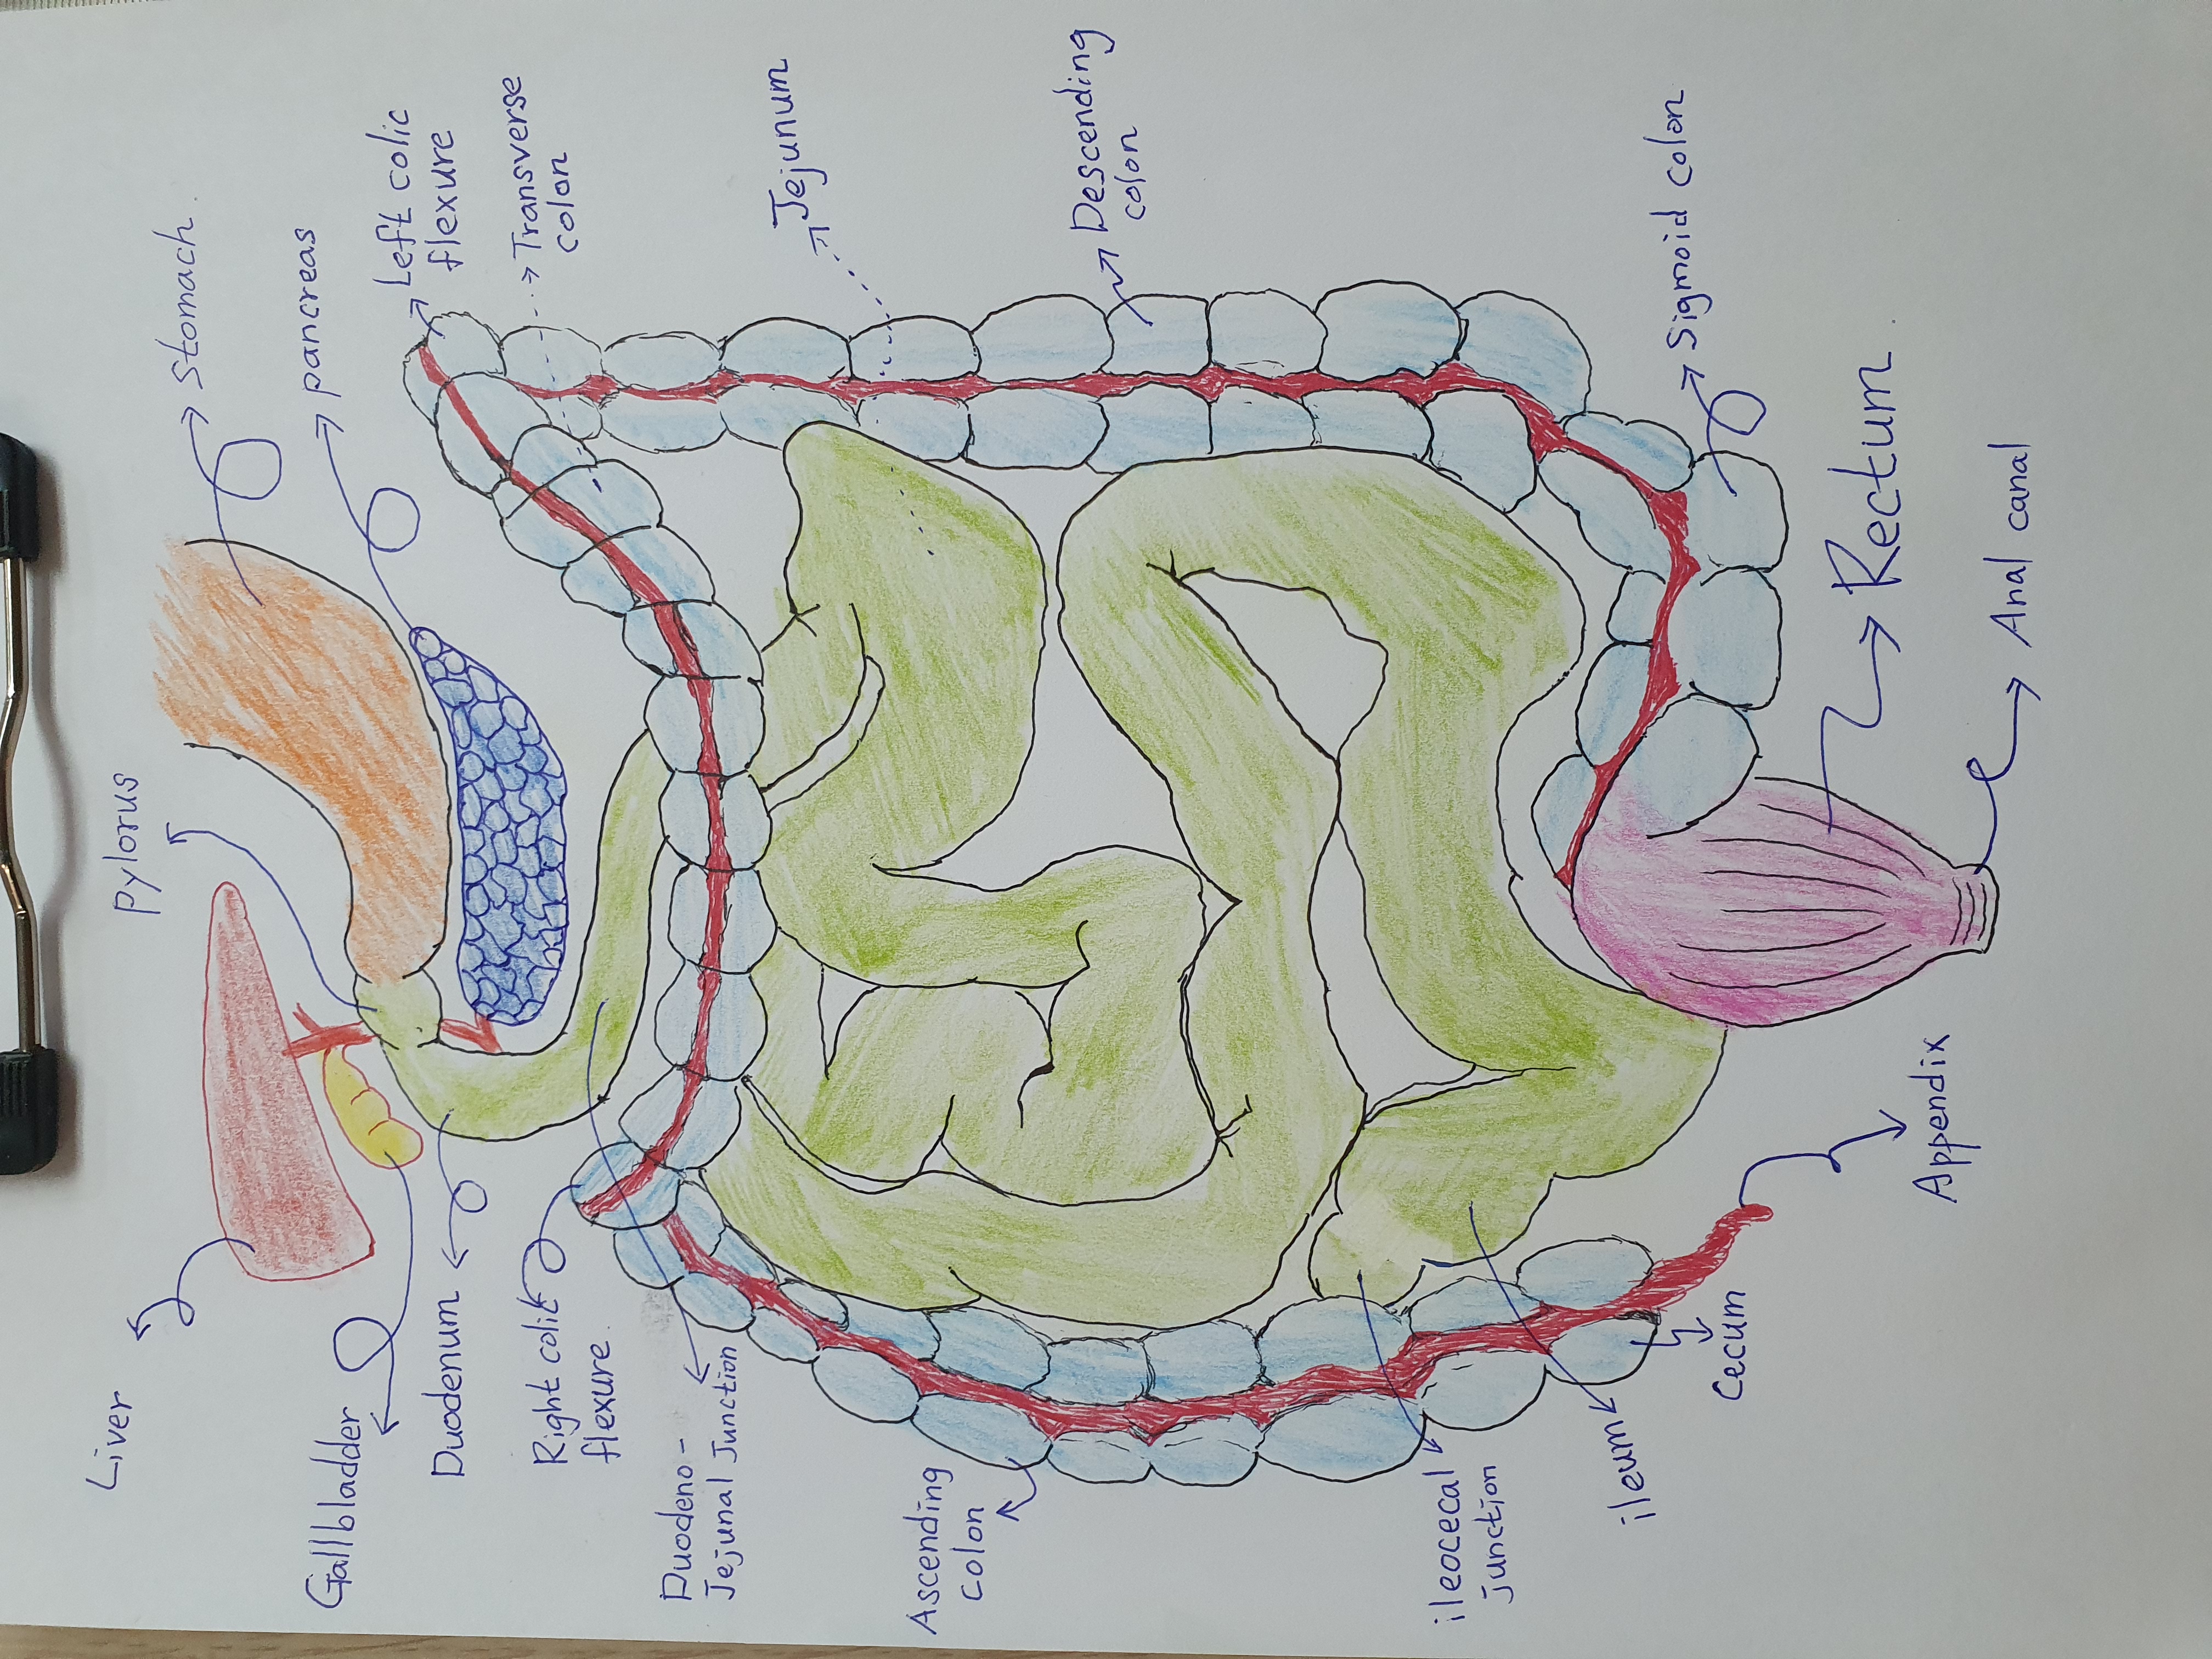 Liver
Pylorus
Stomach
pancreas
Gallbladder
Left colic
flexure
Duodenum
Transverse
colon
Right colic
flexure
Duodeno-
Jejunal Junction
Jejunum
Ascending
colon
Descending
colon
ileocecal
junction
ileum
Sigmoid colon
Cecum
Rectum
Appendix
Anal canal